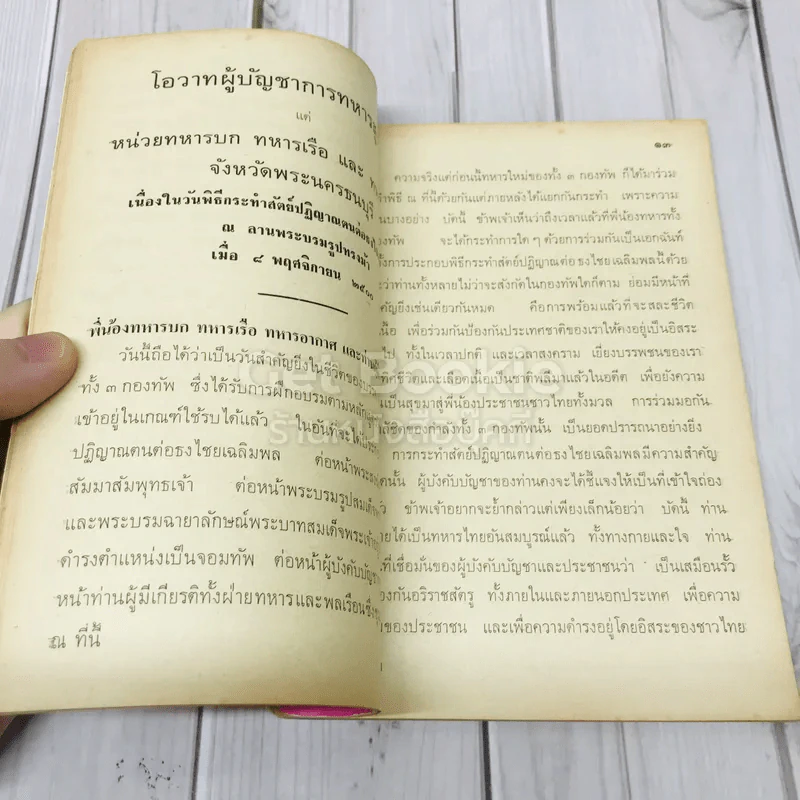 โอวาทผู้บัญชาการทหาร
แต่
หน่วยทหารบก ทหารเรือ และ
จังหวัดพระนครธนบุรี
เนื่องในวันพิธีกระทำสัตย์ปฏิญาณตนต่อธง
ณ ลานพระบรมรูปทรงม้า
เมื่อ ๘ พฤศจิกายน ๒๕๐๐
พี่น้องทหารบก ทหารเรือ ทหารอากาศ และ
วันนี้ถือได้ว่าเป็นวันสำคัญยิ่งในชีวิตของ
ทั้ง ๓ กองทัพ ซึ่งได้รับการฝึกอบรมตาม
เข้าอยู่ในเกณฑ์ใช้รบได้แล้ว ในอันที่จะได้
ปฏิญาณตนต่อธงไชยเฉลิมพล ต่อหน้าพระ
สัมมาสัมพุทธเจ้า ต่อหน้าพระบรมรูปสมเด็จ
และพระบรมฉายาลักษณ์พระบาทสมเด็จพระเจ้า
ดำรงตำแหน่งเป็นจอมทัพ ต่อหน้าผู้บังคับบัญชา
หน้าท่านผู้มีเกียรติทั้งฝ่ายทหารและพลเรือนซึ่ง
ณ ที่นี้
๑๓
ความจริงแต่ก่อนนี้ทหารใหม่ของทั้ง ๓ กองทัพ ก็ได้มาร่วม
พิธี ณ ที่นี้ด้วยกันแต่ภายหลังได้แยกกันกระทำ เพราะความ
บางอย่าง บัดนี้ ข้าพเจ้าเห็นว่าถึงเวลาแล้วที่พี่น้องทหารทั้ง
กองทัพ จะได้กระทำการใด ๆ ด้วยการร่วมกันเป็นเอกฉันท์
การประกอบพิธีกระทำสัตย์ปฏิญาณต่อธงไชยเฉลิมพลนี้ด้วย
ว่าท่านทั้งหลายไม่ว่าจะสังกัดในกองทัพใดก็ตาม ย่อมมีหน้าที่
สำคัญยิ่งเช่นเดียวกันหมด คือการพร้อมแล้วที่จะสละชีวิต
เนื้อ เพื่อร่วมกันป้องกันประเทศชาติของเราให้คงอยู่เป็นอิสระ
ไป ทั้งในเวลาปกติ และเวลาสงคราม เยี่ยงบรรพชนของเรา
ชีวิตและเลือดเนื้อเป็นชาติพลีมาแล้วในอดีต เพื่อยังความ
เป็นสุขมาสู่พี่น้องประชาชนชาวไทยทั้งมวล การร่วมมือกัน
ของกำลังทั้ง ๓ กองทัพนั้น เป็นยอดปรารถนาอย่างยิ่ง
การกระทำสัตย์ปฏิญาณตนต่อธงไชยเฉลิมพลมีความสำคัญ
นั้น ผู้บังคับบัญชาของท่านคงจะได้ชี้แจงให้เป็นที่เข้าใจถ่อง
ข้าพเจ้าอยากจะย้ำกล่าวแต่เพียงเล็กน้อยว่า บัดนี้ ท่าน
ได้เป็นทหารไทยอันสมบูรณ์แล้ว ทั้งทางกายและใจ ท่าน
ที่เชื่อมั่นของผู้บังคับบัญชาและประชาชนว่า เป็นเสมือนรั้ว
ป้องกันอริราชสัตรู ทั้งภายในและภายนอกประเทศ เพื่อความ
ของประชาชน และเพื่อความดำรงอยู่โดยอิสระของชาวไทย
Get Bookie
ร้านหนังสือเก่า